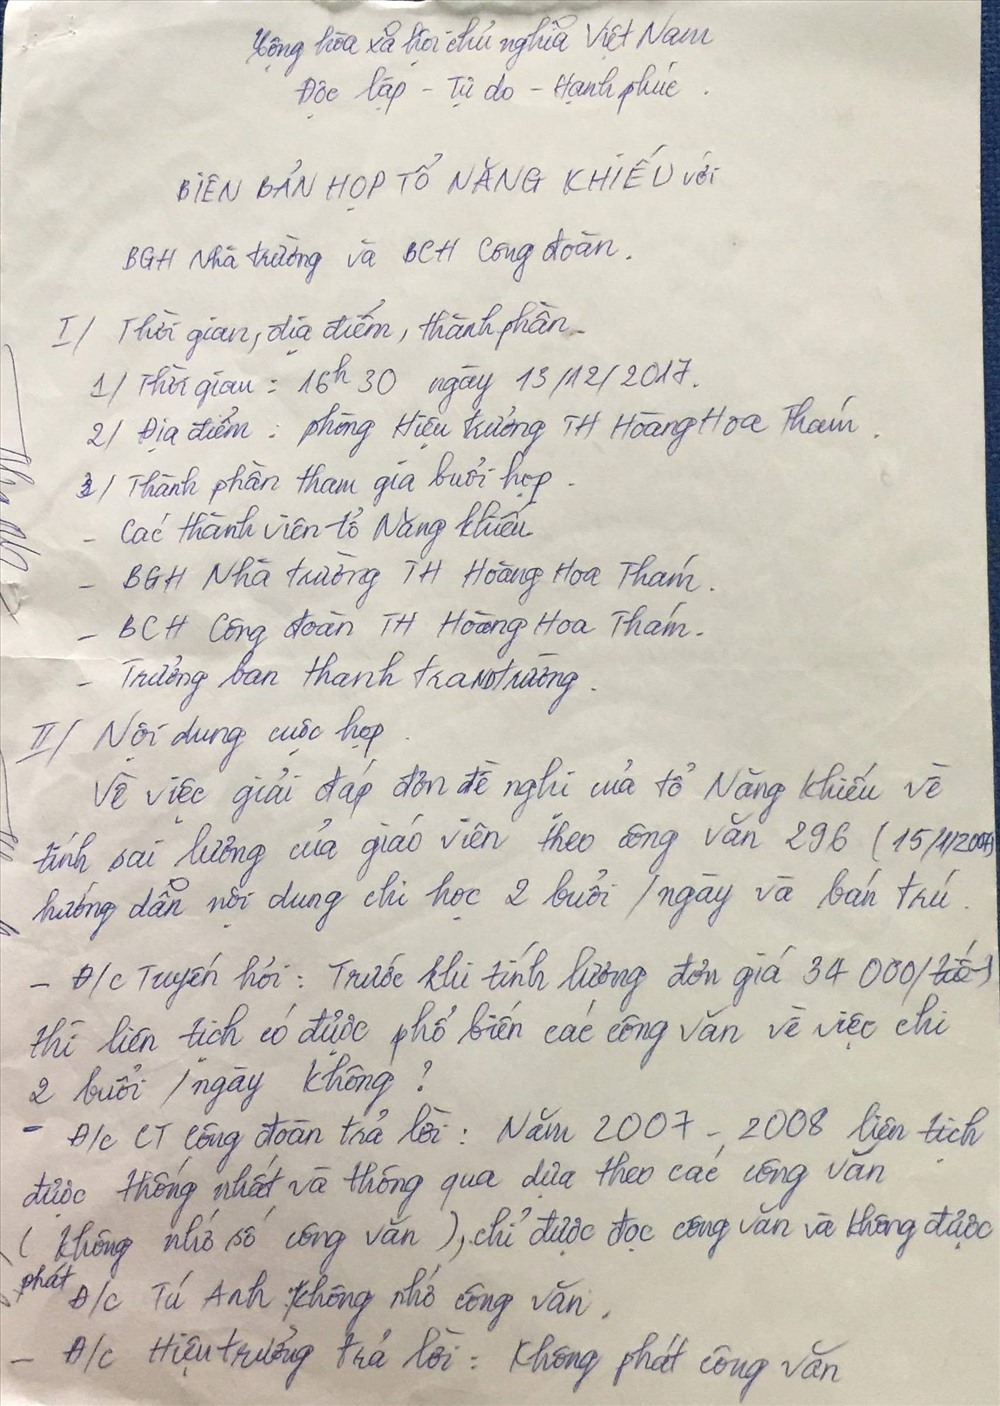 Cộng hòa xã hội chủ nghĩa Việt Nam
Độc lập - Tự do - Hạnh phúc.
BIÊN BẢN HỌP TỔ NĂNG KHIẾU với
BGH Nhà trường và BCH Công đoàn.
I/ Thời gian, địa điểm, thành phần.
1/ Thời gian: 16h30 ngày 13/12/2017.
2/ Địa điểm: phòng Hiệu trưởng TH Hoàng Hoa Thám.
3/ Thành phần tham gia buổi họp.
- Các thành viên tổ Năng khiếu
- BGH Nhà trường TH Hoàng Hoa Thám.
- BCH Công đoàn TH Hoàng Hoa Thám.
- Trưởng ban thanh tra trường.
II/ Nội dung cuộc họp.
Về việc giải đáp đơn đề nghị của tổ Năng khiếu về
tính sai lương của giáo viên theo công văn 296 (15/1/2007)
hướng dẫn nội dung chi học 2 buổi/ngày và bán trú.
- Đ/c Tuyến hỏi: Trước khi tính lương đơn giá 34 000/
thì liên tịch có được phổ biến các công văn về việc chi
2 buổi/ngày không?
- Đ/c CT Công đoàn trả lời: Năm 2007 - 2008 liên tịch
được thống nhất và thông qua dựa theo các công văn
(không nhớ số công văn), chỉ được đọc công văn và không được
phát
Đ/c Tú Anh: không nhớ công văn.
- Đ/c Hiệu trưởng trả lời: Không phát công văn